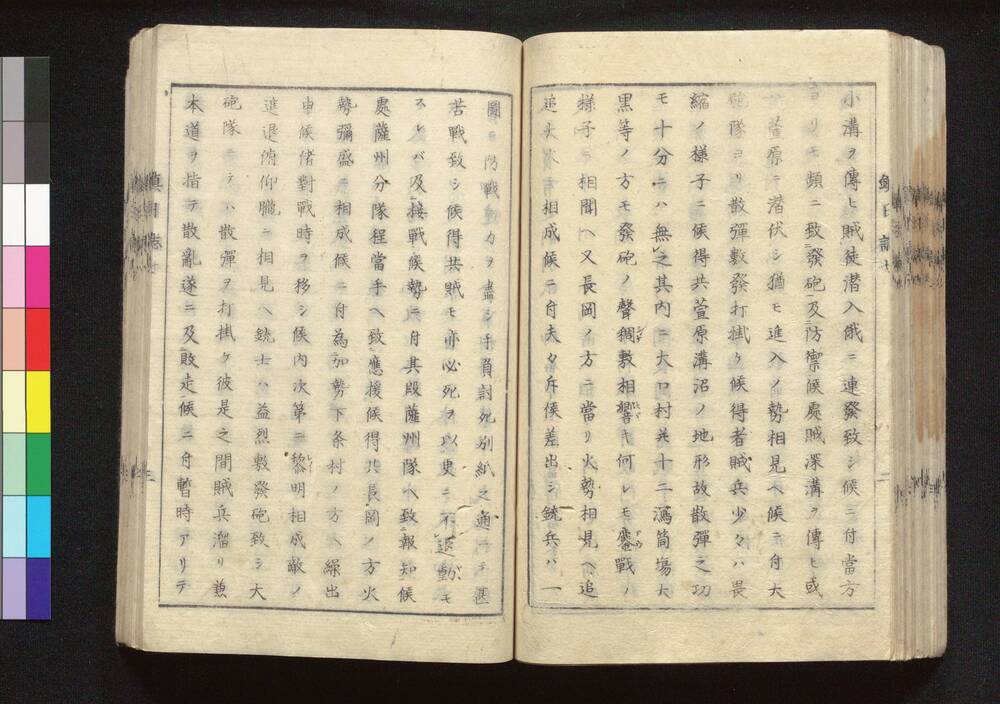 小溝ヲ傳ヒ賊徒潜入俄ニ連發致シ候ニ付當方
ヨリモ頻ニ致發砲及防禦候處賊深溝ヲ傳ヒ或
萱原ニ潜伏シ猶モ進入ノ勢相見ヘ候ニ付大
砲隊ヨリ散彈數發打掛ケ候得者賊兵少々ハ畏
縮ノ様子ニ候得共萱原溝沼ノ地形故散彈之功
モ十分ニハ無之其内ニ大口村并十二潟筒塲大
黒等ノ方モ發砲ノ聲稠敷相響キ何レモ鏖戰ノ
様子ニ相聞ヘ又長岡ノ方ニ當リ火勢相見ヘ追
追大 相成候ニ付夫々斥候差出シ銃兵ハ一
圓ニ防戰 力ヲ盡シ手負討死別紙之通ニテ甚
苦戰致シ候得共賊モ亦必死ヲ以更ニ不退動モ
スレバ及接戰候勢ニ付其段薩州隊ヘ致報知候
處薩州分隊程當手ヘ致應援候得共長岡ノ方火
勢彌盛ニ相成候ニ付為加勢下条村ノ方ヘ繰出
由候偖對戰時ヲ移シ候内次第ニ黎明相成敵ノ
進退俯仰朧ニ相見ヘ銃士ハ益烈敷發砲致シ大
砲隊ニテハ散彈ヲ打掛ケ彼是之間賊兵溜リ兼
本道ヲ指テ散亂遂ニ及敗走候ニ付暫時アリテ